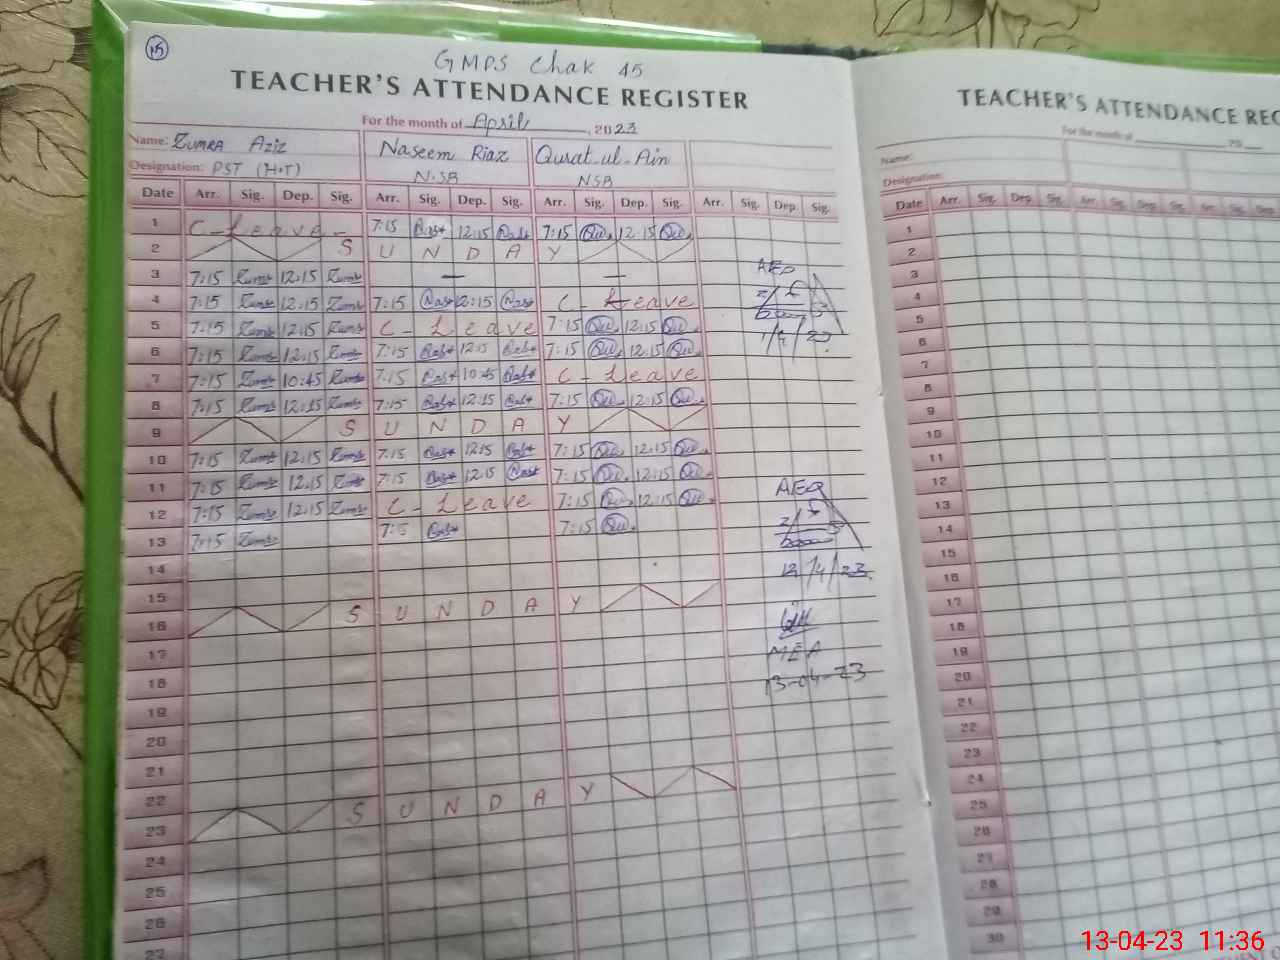 15
GMPS Chak 45
TEACHER'S ATTENDANCE REGISTER
For the month of April, 2023
Name: Zumra Aziz Naseem Riaz Qurat-ul-Ain
Designation: PST (H.T) N.SB NSB
Date Arr. Sig. Dep. Sig. Arr. Sig. Dep. Sig. Arr. Sig. Dep. Sig. Arr. Sig. Dep. Sig.
1 C-Leave- 7:15 12:15 7:15 12:15
2 S U N D A Y
3 7:15 12:15 — —
4 7:15 12:15 7:15 12:15 C-Leave
5 7:15 12:15 C-Leave 7:15 12:15
6 7:15 12:15 7:15 12:15 7:15 12:15
7 7:15 10:45 7:15 10:45 C-Leave
8 7:15 12:15 7:15 12:15 7:15 12:15
9 S U N D A Y
10 7:15 12:15 7:15 12:15 7:15 12:15
11 7:15 12:15 7:15 12:15 7:15 12:15
12 7:15 12:15 C-Leave 7:15 12:15
13 7:15 7:15 7:15
14
15
16 S U N D A Y
17
18
19
20
21
22
23 S U N D A Y
24
25
26
27
AEO
1/4/23
AEO
12/4/23
MEA
13-04-23
TEACHER'S ATTENDANCE REG
For the month of 20
Name:
Designation:
Date Arr. Sig. Dep. Sig. Arr. Sig. Dep. Sig. Arr. Sig. Dep.
1
2
3
4
5
6
7
8
9
10
11
12
13
14
15
16
17
18
19
20
21
22
23
24
25
26
27
28
29
30
13-04-23 11:36